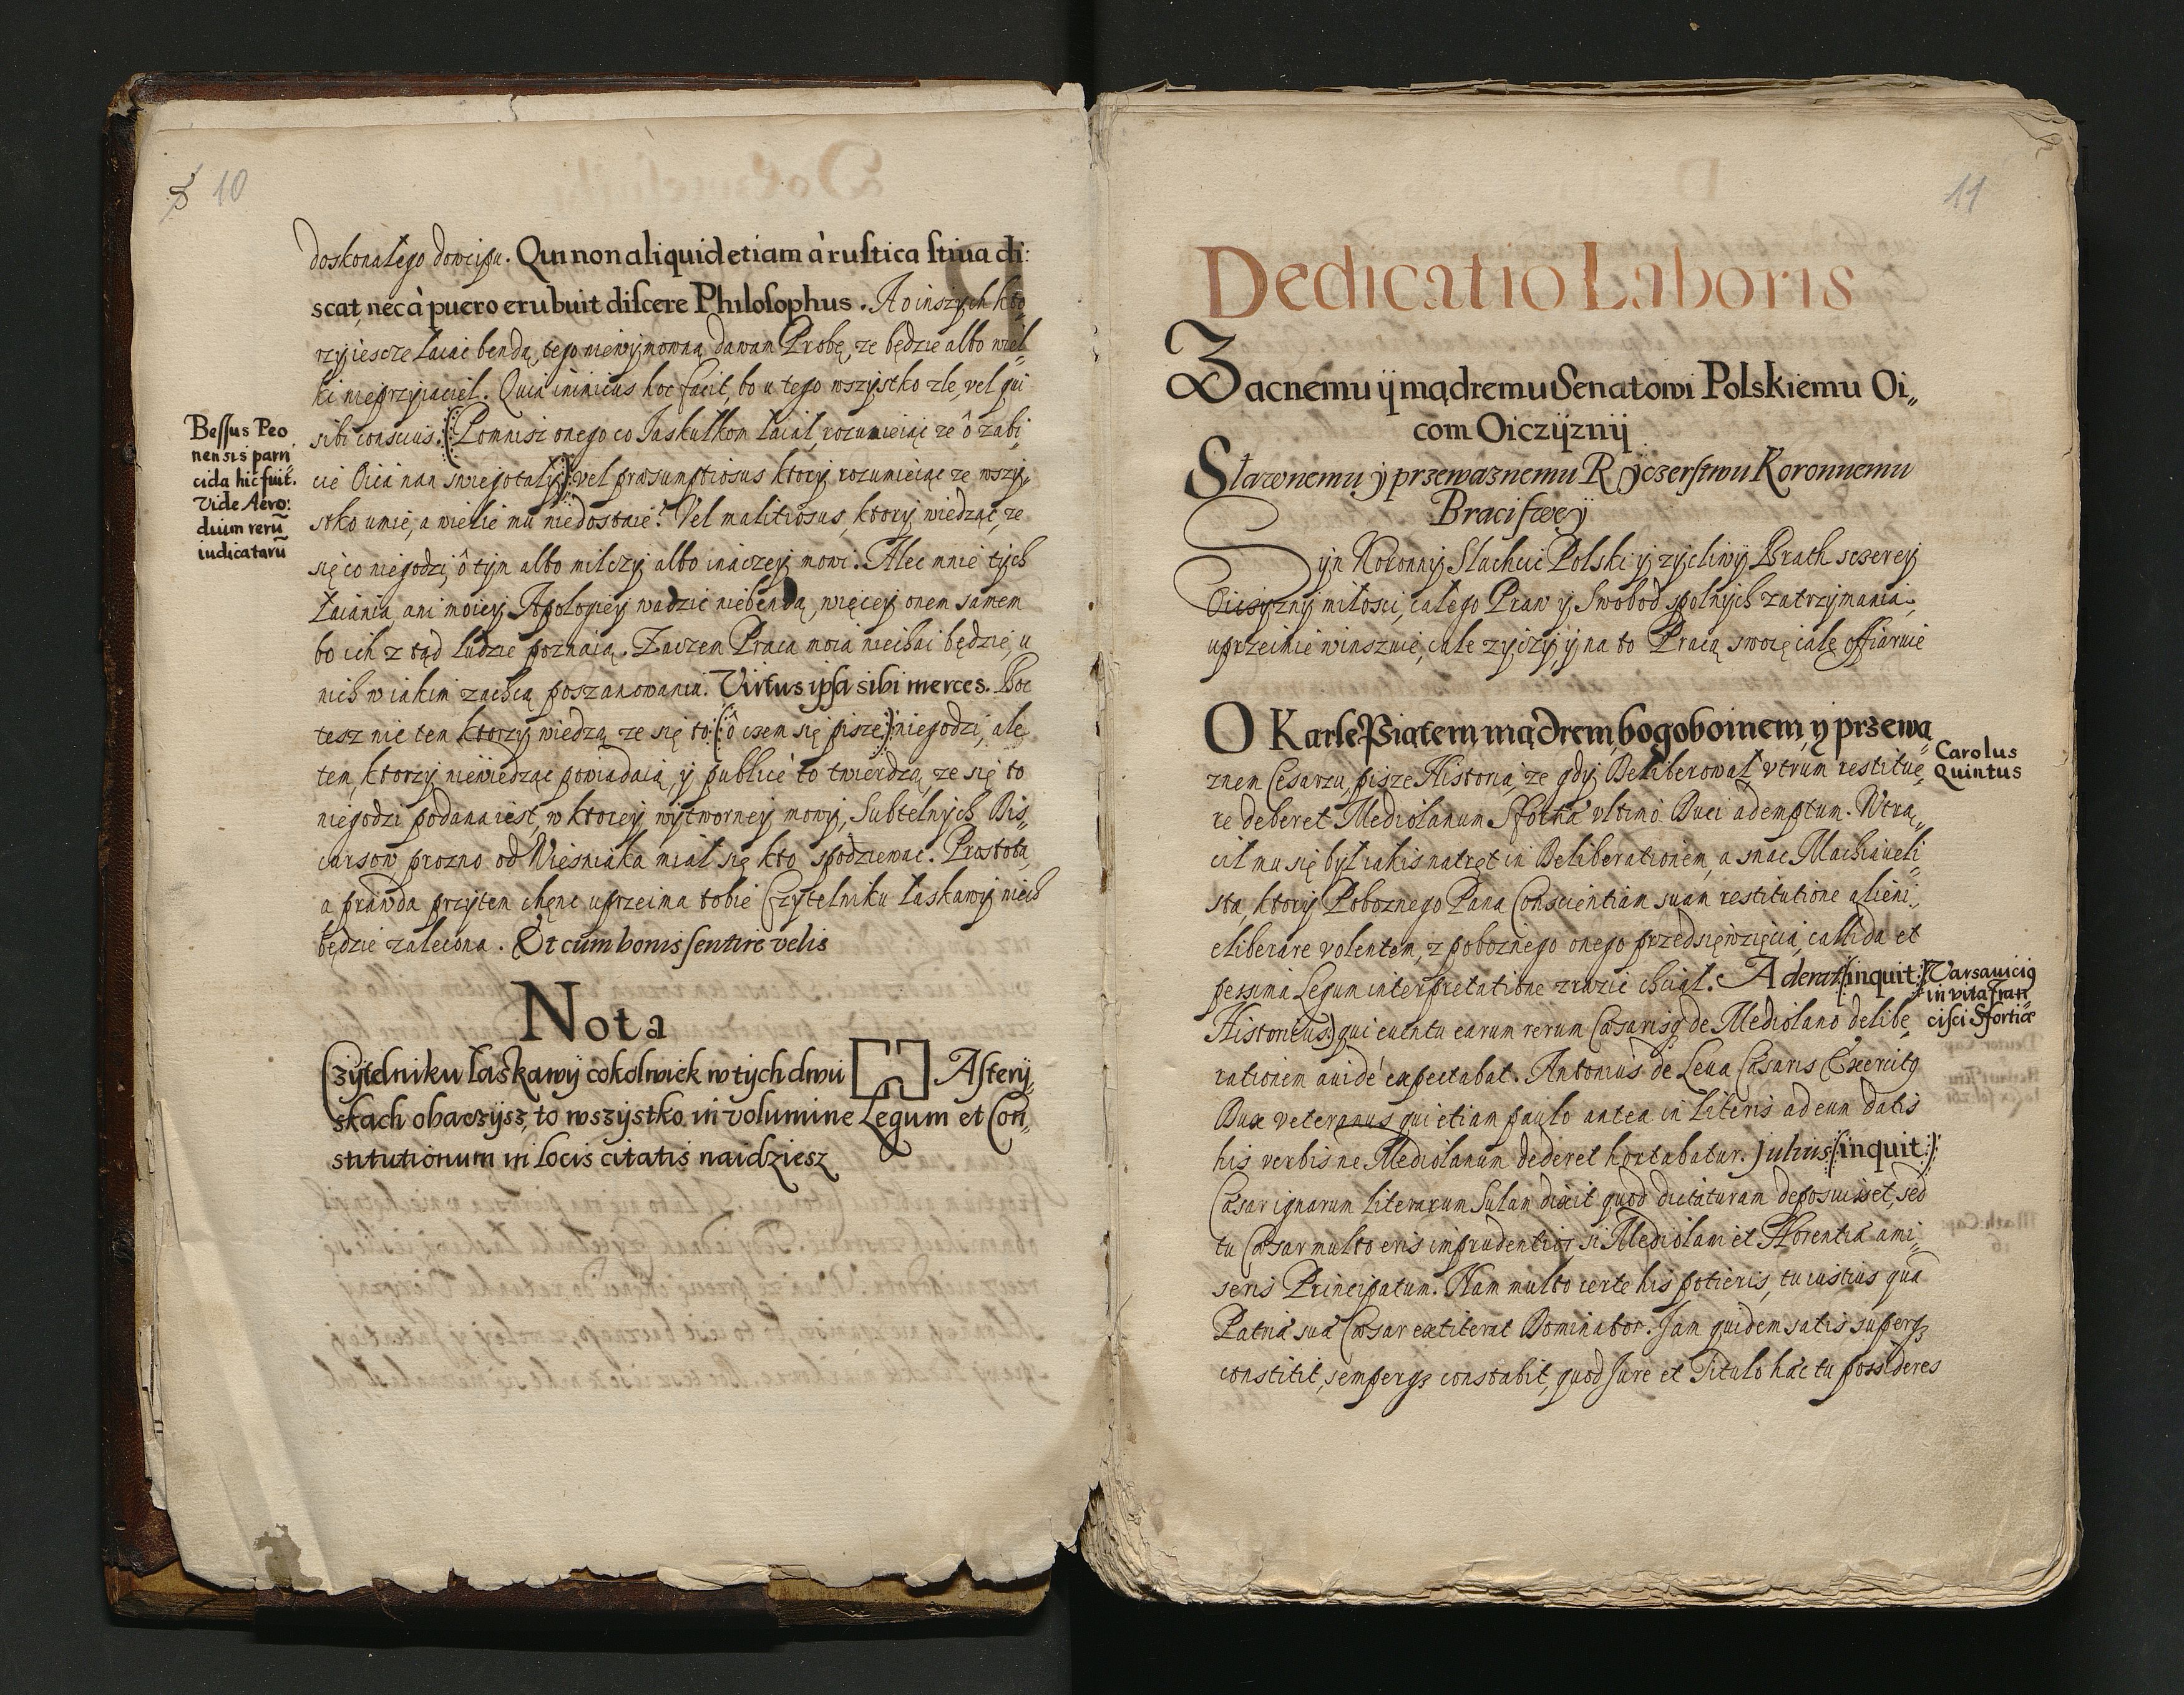 10
doskonałego dowcipu. Qui non aliquid etiam à rustica stiua di:
scat, nec à puero erubuit discere Philosophus. A o inszych kto„
rzy iescze łaiac bendą, tego niewymowną dawam Probę, ze będzie albo wiel„
ki nieprzyiaciel. Quia inimicus hoc facit, bo u tego wszystko zle, vel qui
sibi conscius. (Pomnisz onego co Jaskułkom łaiał, rozumieiąc ze ô zabi„
cie Oica nan swiegotały) vel præsumptiosus ktory rozumieiąc ze wszy„
stko umie, a wielie mu niedostaie? Vel malitiosus, ktory wiedząc, ze
się co niegodzi, ô tym albo milczy albo inaczey mowi. Alec mnie tych
Łaiania, ani moiey Apologiey wadzic niebendą, więcey onem samem
bo ich z tąd ludzie poznaią. Zaczem Praca moia niechai będzie, u
nich w iakim zachcą poszanowaniu. Virtus ipsa sibi merces. Boc
tesz nie tem ktorzy wiedzą ze się to (ô czem się pisze) niegodzi, ale
tem, ktorzy niewiedząc powiadaią, y publicè to twierdzą, ze się to
niegodzi podana iest, w ktorey wytworney mowy, Subtelnych Dis„
cursow, prozno od Wiesniaka miał się kto spodziewac. Prostota
a prawda przytem chęnc uprzeima tobie Czytelniku łaskawy niech
będzie zalecona. Et cum bonis sentire velis
Bessus Peo
nensis parri
cida hic fuit.
Vide Aero:
dium rerū
iudicatarū
Nota
Czytelniku łaskawy cokolwiek w tych dwu Astery„
skach obaczysz, to wszystko in volumine Legum et Con„
stitutionum in locis citatis naidziesz
11
Dedicatio Laboris
Zacnemu y mądremu Senatowi Polskiemu Oi„
com Oiczyzny
Sławnemu y przewaznemu Ryczerstwu Koronnemu
Braci swey
Syn Koronny Slachcic Polski y zycliwy Brath sczerey
Oiczyzny miłosci, całego Praw y Swobod spolnych zatrzymania
uprzeimie winszuie, cale zyczy, y na to Pracą swoię całę offiaruie
O Karle Piątem mądrem, bogoboinem, y przewa„
znem Cesarzu, pisze Historia, ze gdy Deliberował vtrum restitue„
re deberet Mediolanum Sfortia vltimo Duci ademptum. Wtrą„
cił mu się był iakis natręt in Deliberationem, a snac Machiaueli„
sta, ktory Poboznego Pana Conscientiam suam restitutione alieni,
eliberare volentem, z poboznego onego przedsięwzięcia, callida et
pessima Legum interpretatione zrazic chciał. Aderat (inquit
Historicus) qui euentu earum rerum Cæsarisq de Mediolano delibe„
rationem auidè expectabat. Antonius de Leua Cæsaris Exercitq
Dux veteranus qui etiam paulo antea in literis ad eum datis
his verbis ne Mediolanum dederet hortabatur. Julius (inquit)
Cæsar ignarum literarum Sulam dixit quod dictaturam deposuisset, sed
tu Cæsar multo eris imprudentior, si Mediolani et Florentiæ ami„
seris Principatum. Nam multo certe his potieris, tu iustius quā
Patriā suā Cæsar extiterat Dominator. Jam quidem satis superq
constitit, semperq constabit, quod Jure et Titulo hæc tu possideres
Carolus
Quintus
Varsauiciq
in vita Fran
cisci Sfortiæ